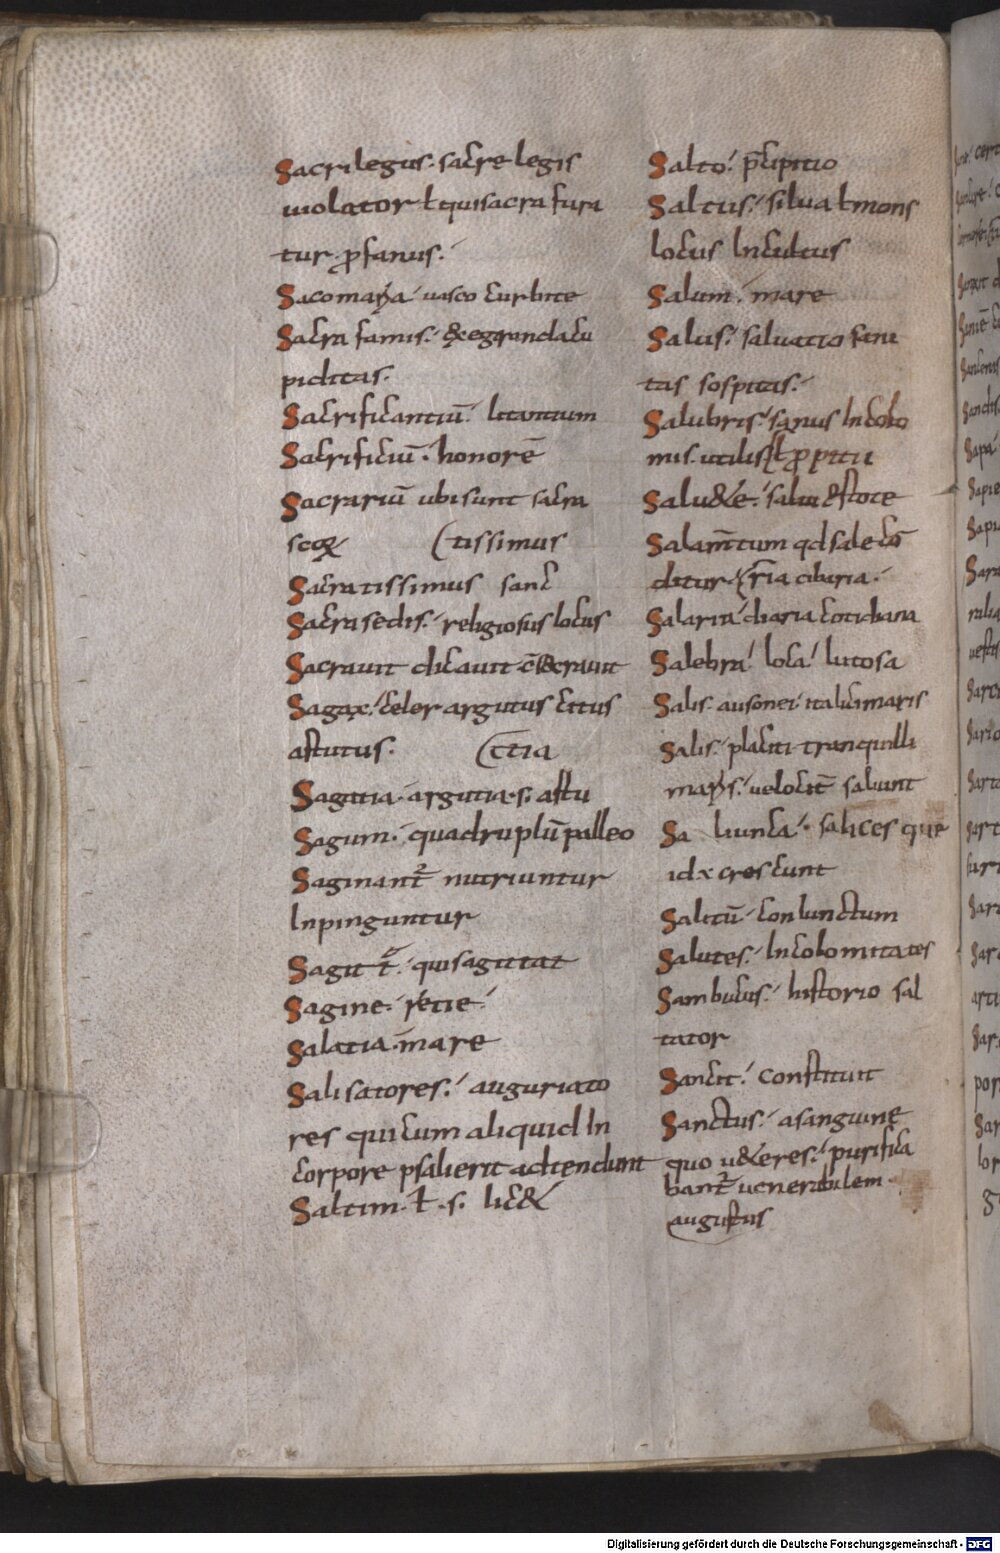 Sacrilegus. sacre legis
uiolator ł qui sacra fura
tur. ꝓfanus.
Sacra famis. & egranda cu
piditas.
Sacrificantiū. litantium
Sacrificiū. honorē
Sacrariū ubi sunt sacra
scoꝝ (tissimus
Sacratissimus sanc
Sacra sedis. religiosus locus
Sacrauit dicauit
Sagax. celer argutus citus
astutus.
Sagatia. argutia. s. astu
Sagum. quadruplū palleo
Saginant᷑ nutriuntur
Inpinguntur
quisagittat
Sagine.
Salatia. mare
Salisatores. auguriato
res qui cum aliquid In
corpore psalierit adtendunt
Saltim. ł. s. lic&
Salto. p̄cipitio
Saltus. silua ł mons
locus Incultus
Salum. mare
Salus. saluatio sani
tas sospitas.
Salubris. sanus Incolo
mis. utilis
Salu&e. salui estote
qd sale
ditur
Salaria. diaria cotidiana
Salebra. loca. lutosa
Salis. ausonei. italici maris
Salis. placiti tranquilli
saliunt
Sa liunca. salices que
id x crescunt
Salitū. coniunctum
Salutes. Incolomitates
Sambucus. historio sal
tator
Sancit. constituit
Sanctus. a sanguine
quo u&eres. purifica
bant᷑ uenerabilem
augustus
Digitalisierung gefördert durch die Deutsche Forschungsgemeinschaft - DFG